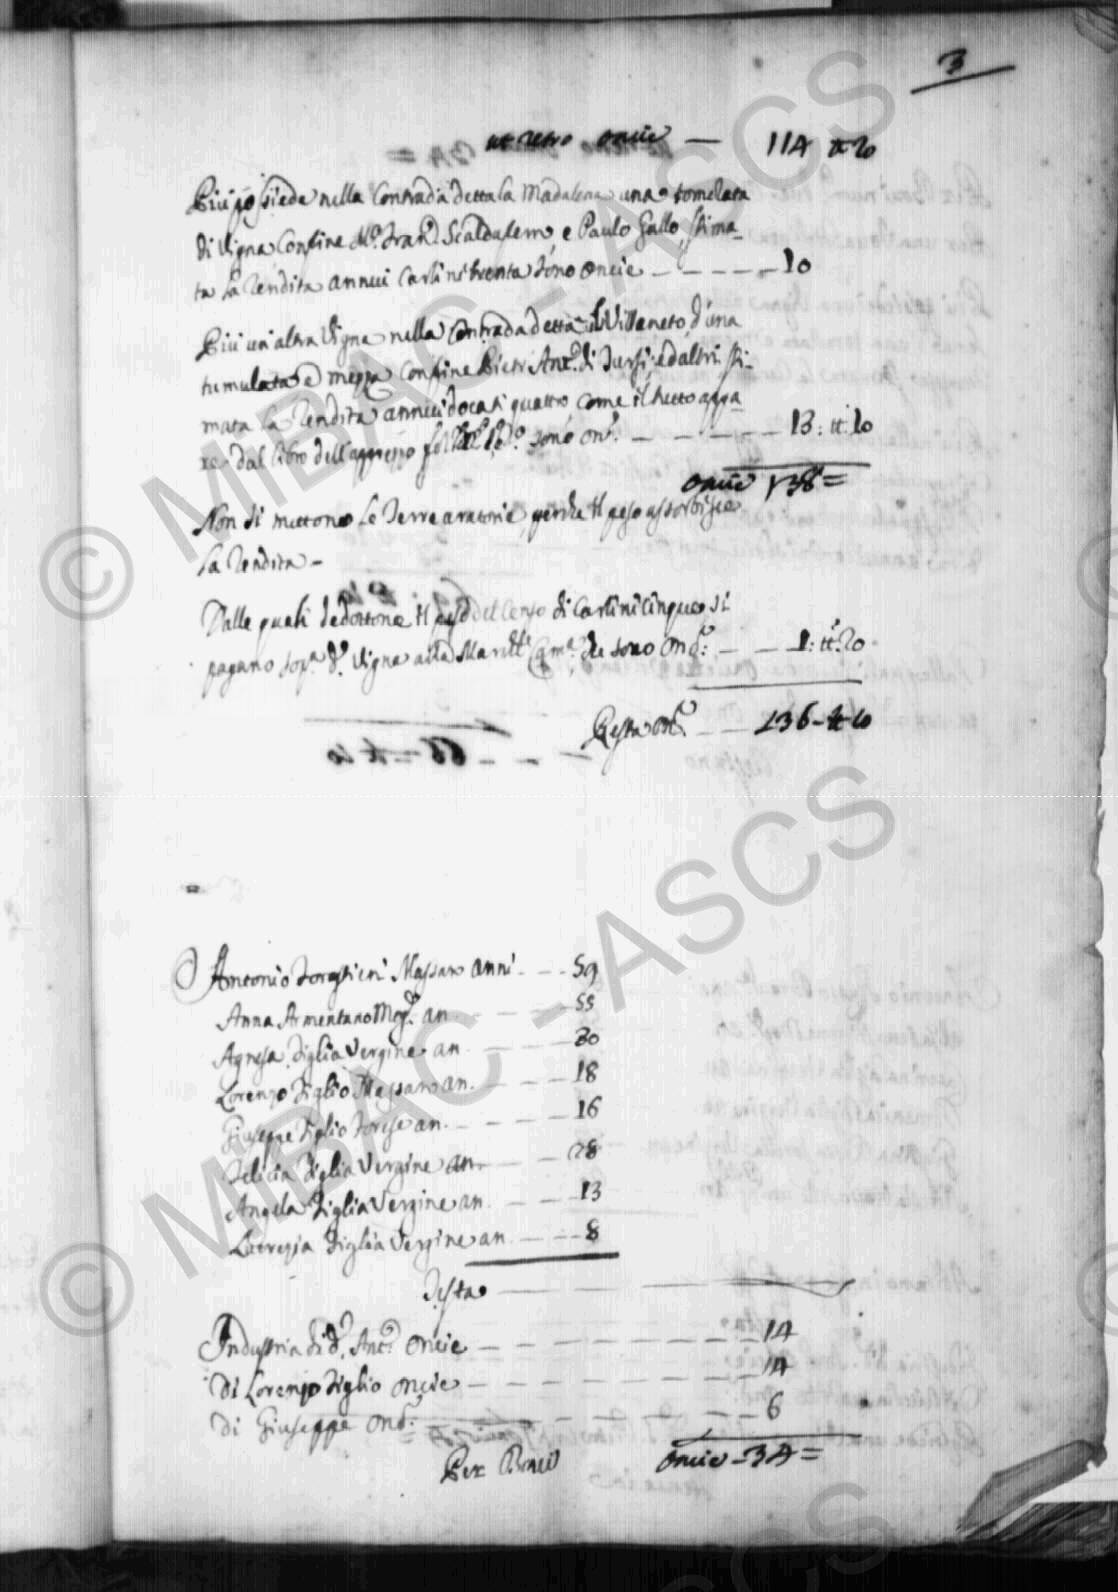 3
ut retro oncie — 114 tt 20
Più possiede nella Contrada detta la Madalena una tomolata
di Vigna Confine M.o Fran.o Scaldaferro, e Paulo Gallo, stima-
ta la rendita annui Carlini trenta sono oncie — — — — — 10
Più un'altra Vigna nella Contrada detta il Villaneto d'una
tumulata e mezza Confine Pietr'Ant.o di Tursi, ed altri sti-
mata la rendita annui docati quattro, come il tutto appa-
re dal libro dell'apprezzo sono on.e — — — — — 13: tt: 10
oncie 138 =
Non si mettono le Terre aratorie, perche il peso assorbisce
la rendita —
Dalle quali dedottone il peso del Censo di Carlini cinque si
pagano sop.a d.a Vigna alla che sono on.e: — — — 1: tt: 20
Resta on.e — — 136 - tt 10
Antonio Forestieri Massaro anni - - - 59
Anna Armentano Mog.e an — — — — 55
Agnesa figlia Vergine an — — — 30
Lorenzo figlio Massaro an. — — — 18
Giuseppe figlio Forese an. — — — — 16
Felicia figlia Vergine an — — — 28
Angela figlia Vergine an. — — — 13
Lucrezia figlia Vergine an — — — 8
Testa
Industria di d.o Ant.o oncie — — — — — — — — 14
di Lorenzo figlio oncie — — — — — — — — 14
di Giuseppe on.e — — — — — 6
oncie - 34 =
Per Beni
© MiBAC - ASCS
© MiBAC - ASCS